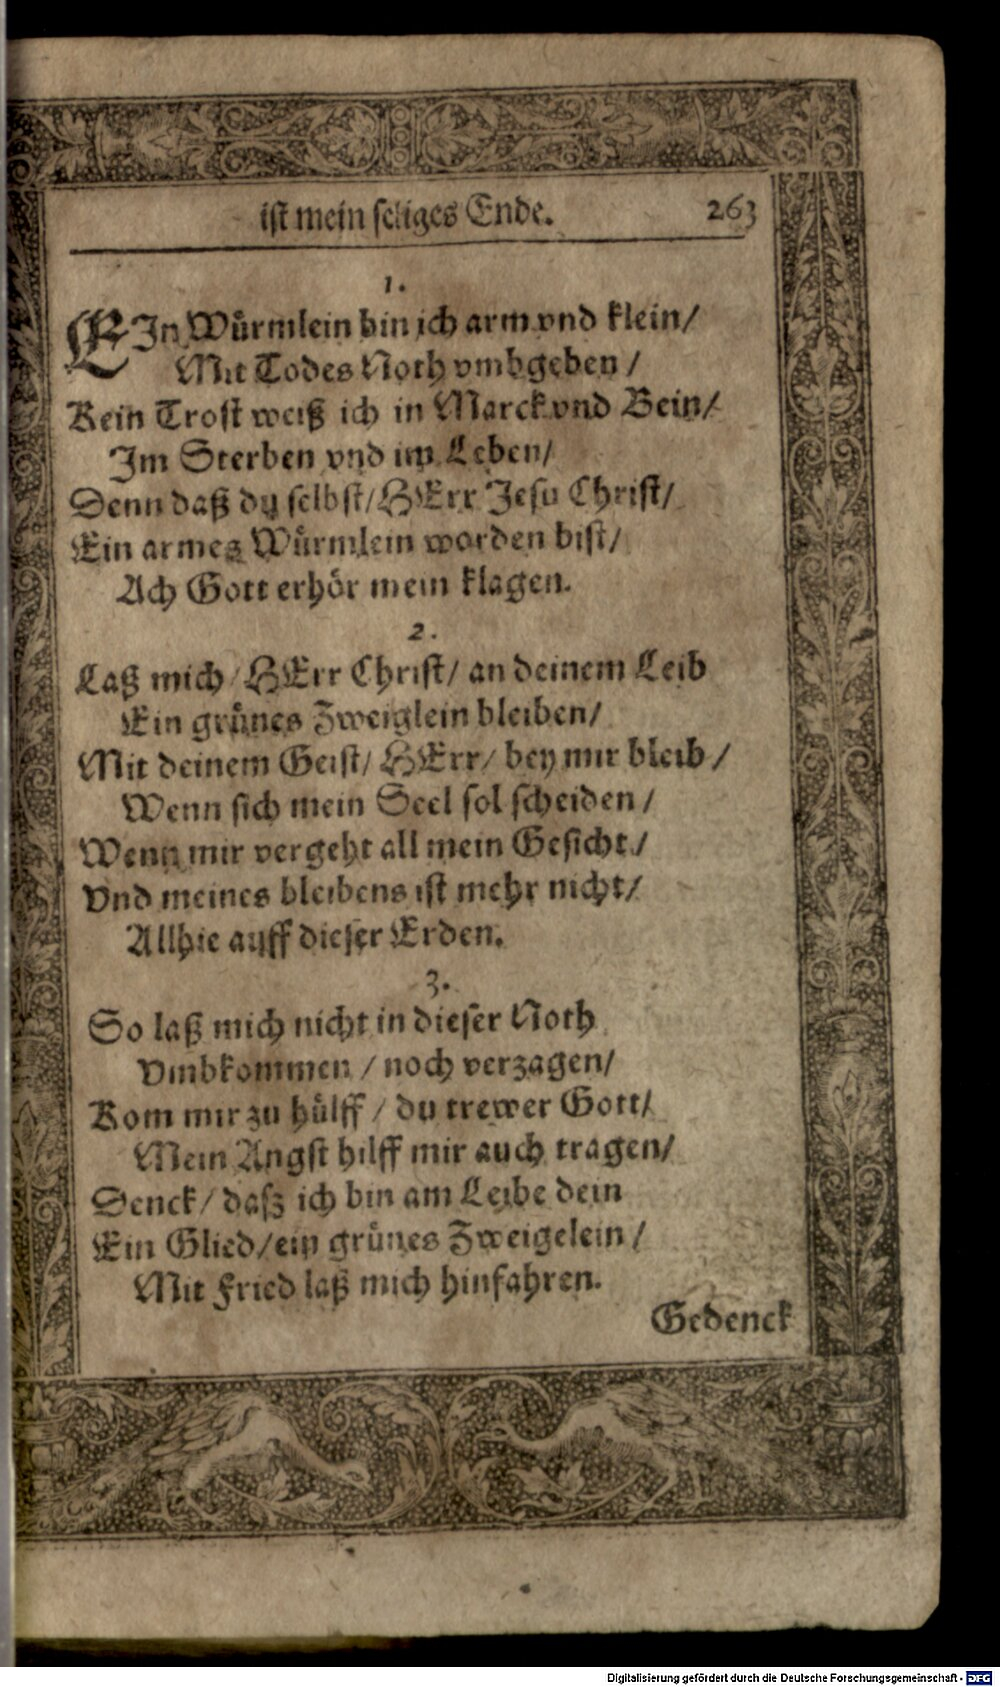 ist mein seliges Ende. 263
1.
EIn Würmlein bin ich arm vnd klein/
Mit Todes Noth vmbgeben/
Kein Trost weiß ich in Marck vnd Bein/
Im Sterben vnd im Leben/
Denn daß du selbst/HErr Jesu Christ/
Ein armes Würmlein worden bist/
Ach Gott erhör mein klagen.
2.
Laß mich/HErr Christ/ an deinem Leib
Ein grünes Zweiglein bleiben/
Mit deinem Geist/HErr/ bey mir bleib/
Wenn sich mein Seel sol scheiden/
Wenn mir vergeht all mein Gesicht/
Vnd meines bleibens ist mehr nicht/
Allhie auff dieser Erden.
3.
So laß mich nicht in dieser Noth
Vmbkommen/ noch verzagen/
Kom mir zu hülff/ du trewer Gott/
Mein Angst hilff mir auch tragen/
Denck/ daß ich bin am Leibe dein
Ein Glied/ein grünes Zweigelein/
Mit Fried laß mich hinfahren.
Gedenck
Digitalisierung gefördert durch die Deutsche Forschungsgemeinschaft - DFG